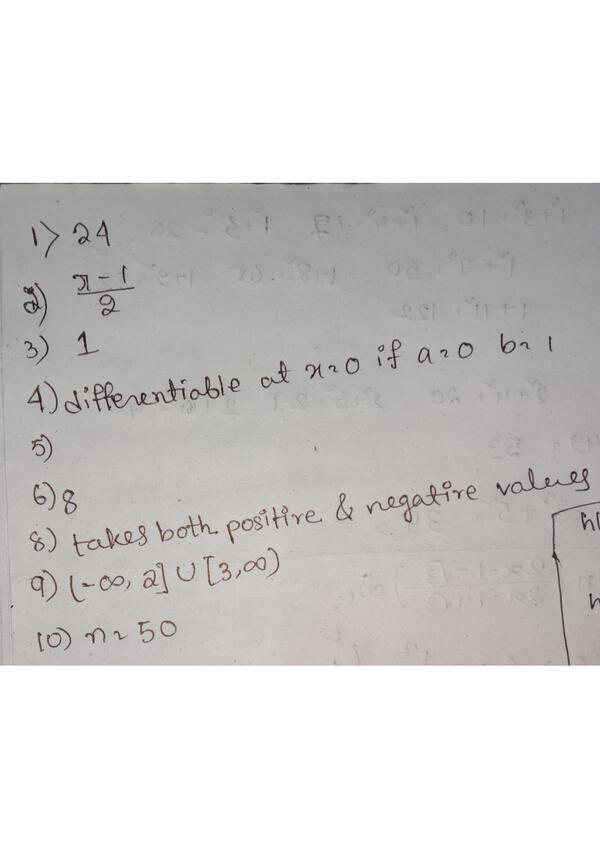 1) 24
2) x-1/2
3) 1
4) differentiable at x=0 if a=0 b=1
5)
6) 8
8) takes both positive & negative values
9) (-∞, 2] ∪ [3, ∞)
10) n = 50